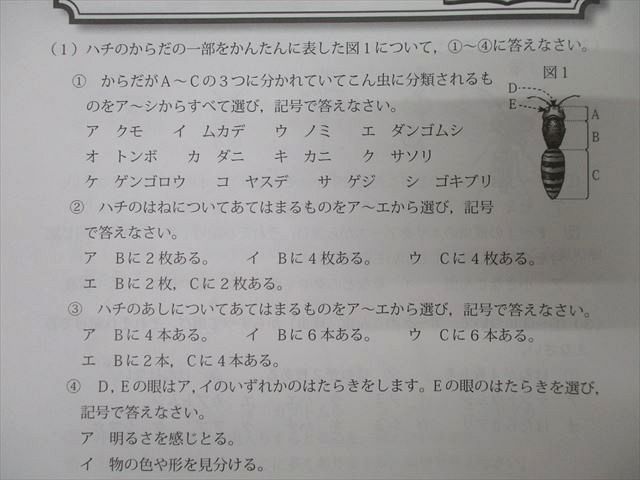 (1) ハチのからだの一部をかんたんに表した図1について，①～④に答えなさい。
① からだがA～Cの3つに分かれていてこん虫に分類されるも
のをア～シからすべて選び，記号で答えなさい。
ア クモ イ ムカデ ウ ノミ エ ダンゴムシ
オ トンボ カ ダニ キ カニ ク サソリ
ケ ゲンゴロウ コ ヤスデ サ ゲジ シ ゴキブリ
図1
D
E
A
B
C
② ハチのはねについてあてはまるものをア～エから選び，記号
で答えなさい。
ア Bに2枚ある。 イ Bに4枚ある。 ウ Cに4枚ある。
エ Bに2枚，Cに2枚ある。
③ ハチのあしについてあてはまるものをア～エから選び，記号で答えなさい。
ア Bに4本ある。 イ Bに6本ある。 ウ Cに6本ある。
エ Bに2本，Cに4本ある。
④ D，Eの眼はア，イのいずれかのはたらきをします。Eの眼のはたらきを選び，
記号で答えなさい。
ア 明るさを感じとる。
イ 物の色や形を見分ける。